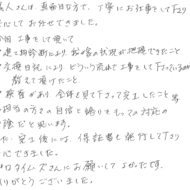 職人さんは、真面目な方で、丁寧にお仕事をして下さり
安心してお任せできました。
今回工事をして頂いて
建物診断により、我が家の状況が把握できたこと
交換日記により、どういう流れで工事をして下っているか
教えて頂けたこと
検査があり、全体を見て下さって完工したこと等
担当の方々の自信と誇りをもっての対応の
お陰だと思います。
また、完工後には、保証書も発行して下さり
安心できました。
プロタイムズさんにお願いしてよかったです。
ありがとうございました。